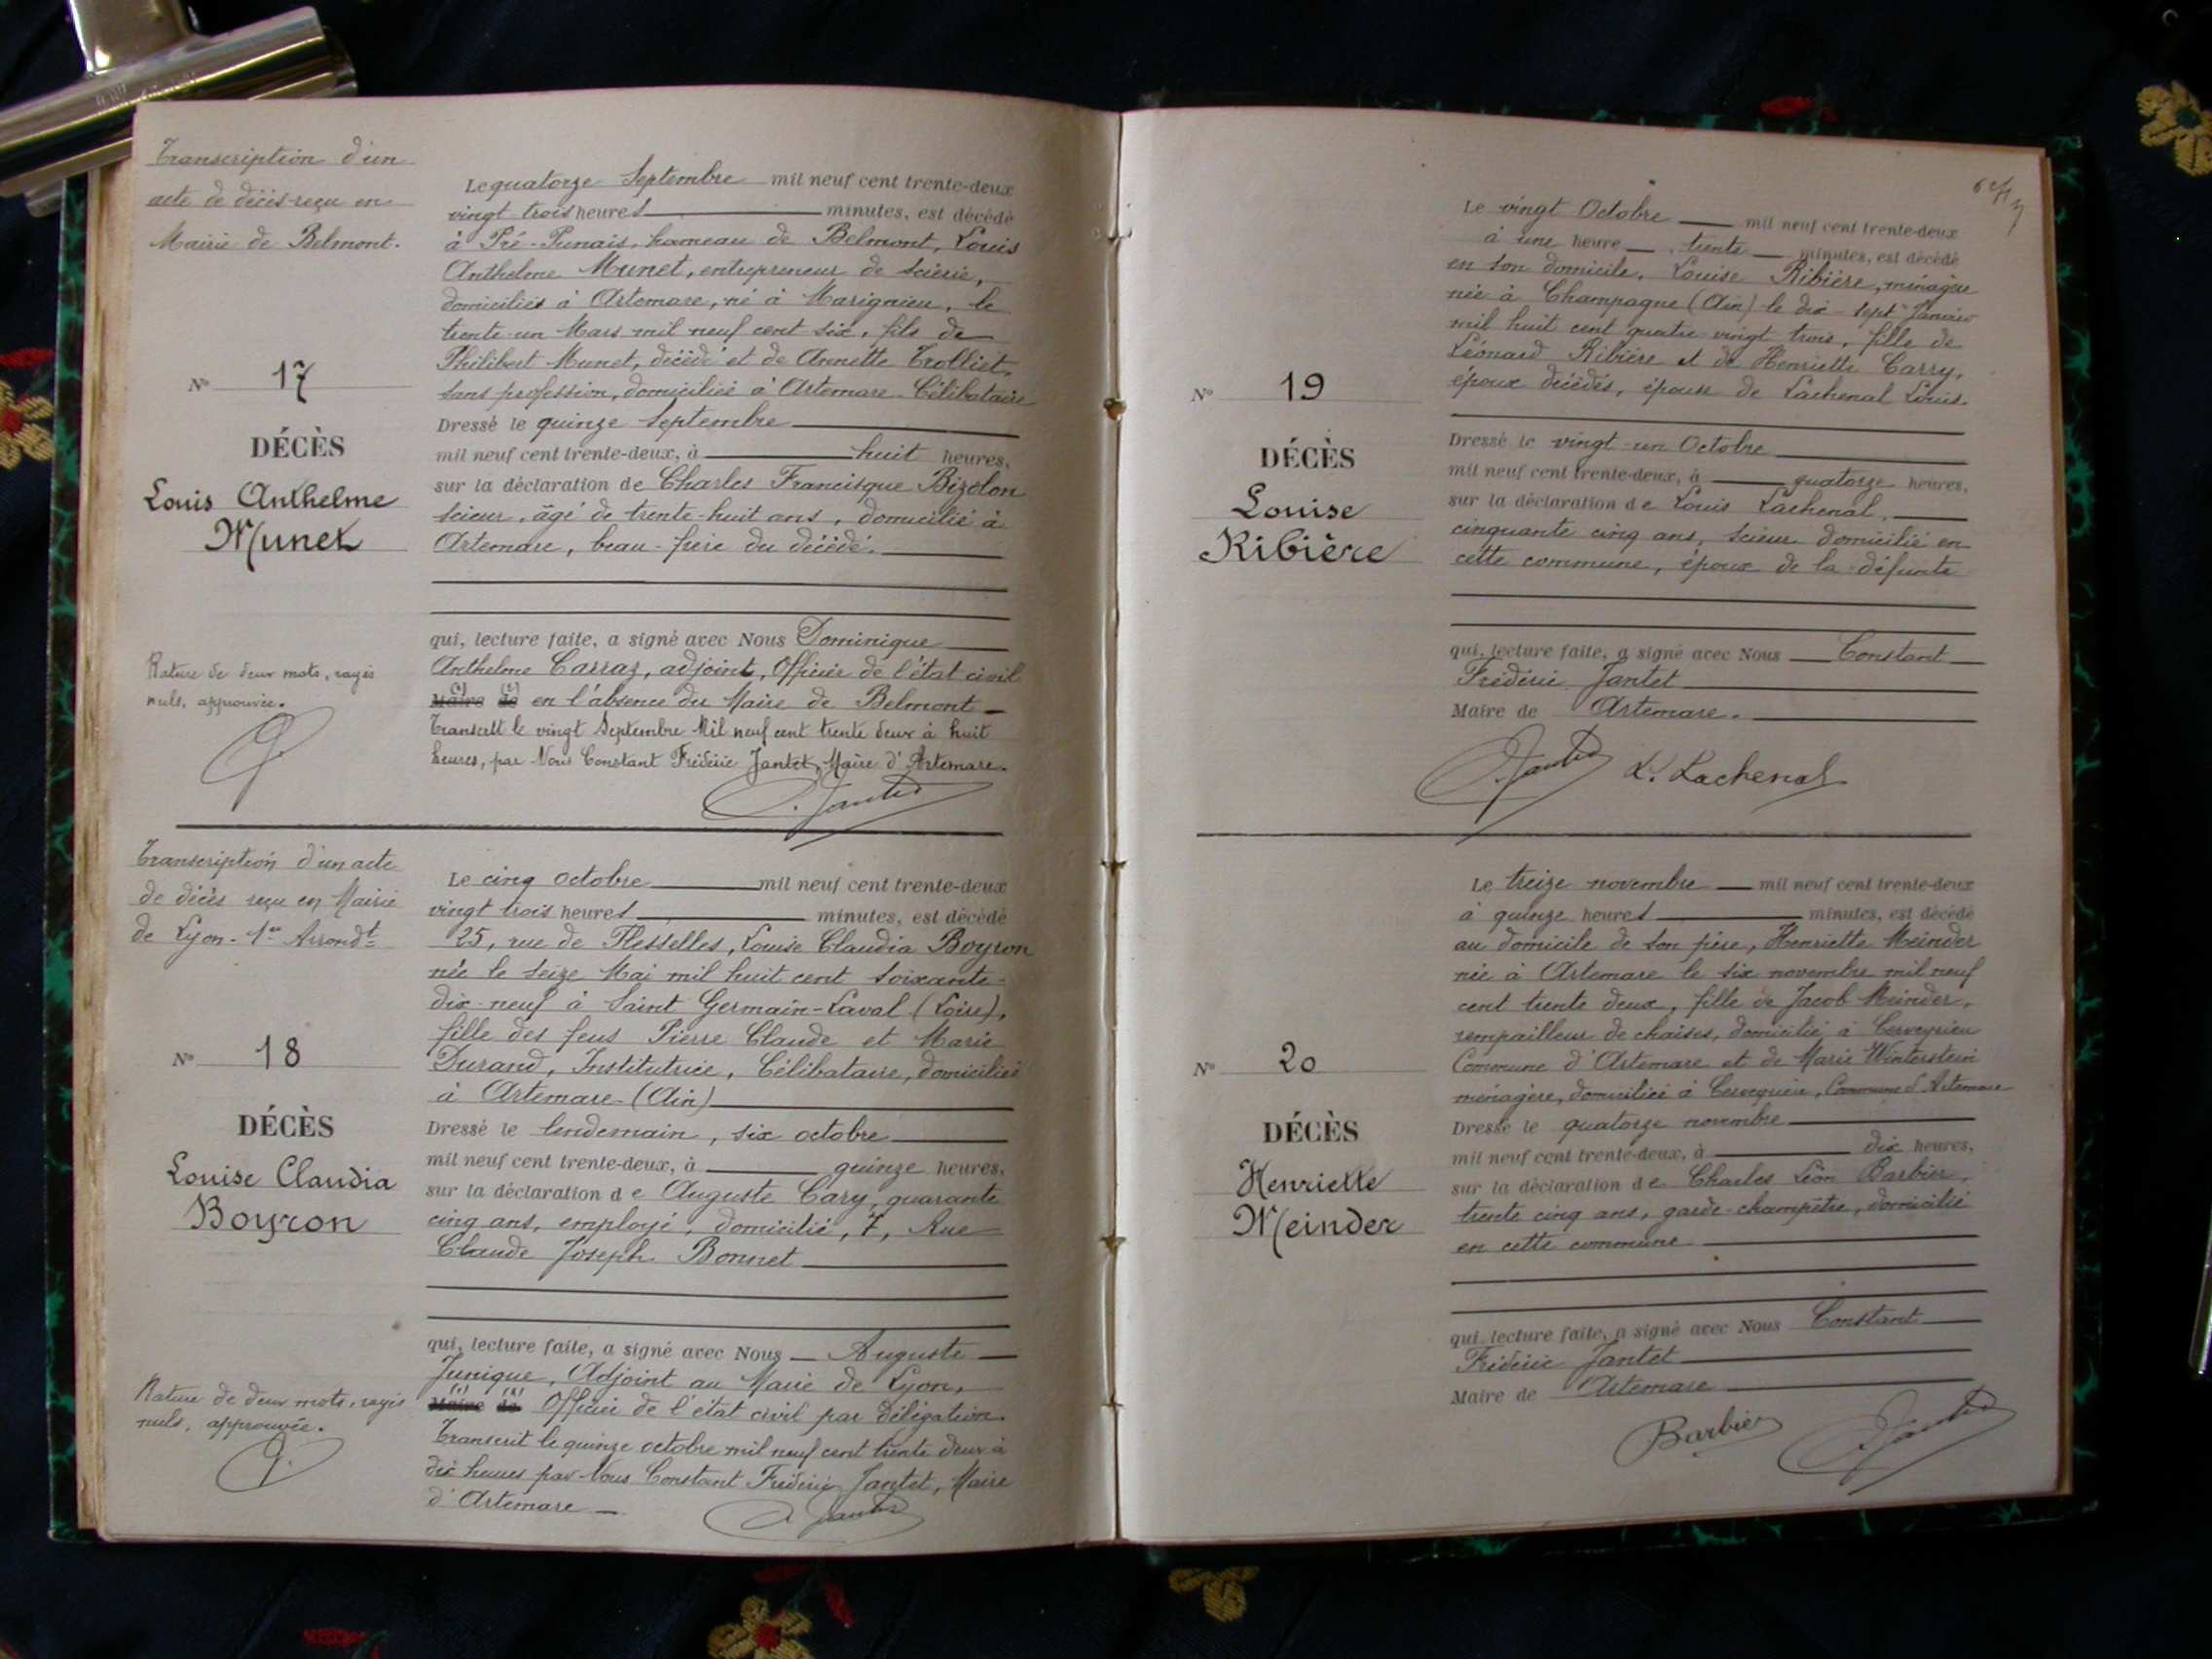 Transcription d'un
acte de décès reçu en
Mairie de Belmont.
N° 17
DÉCÈS
Louis Anthelme
Munet
Rature de deux mots, rayés
nuls, approuvée.
Le quatorze Septembre mil neuf cent trente-deux
vingt trois heures minutes, est décédé
à Pré-Punais, hameau de Belmont, Louis
Anthelme Munet, entrepreneur de scierie,
domicilié à Artemare, né à Marignieu, le
trente-un Mars mil neuf cent six, fils de
Philibert Munet, décédé et de Annette Trolliet,
sans profession, domiciliée à Artemare. Célibataire
Dressé le quinze Septembre
mil neuf cent trente-deux, à huit heures,
sur la déclaration de Charles Francisque Bizolon
scieur, âgé de trente-huit ans, domicilié à
Artemare, beau-frère du décédé.
qui, lecture faite, a signé avec Nous Dominique
Anthelme Carraz, adjoint, Officier de l'état civil
(1) (2)
Maire de en l'absence du Maire de Belmont
Transcrit le vingt Septembre Mil neuf cent trente deux à huit
heures, par Nous Constant Frédéric Jantet, Maire d'Artemare.
Jantet
Transcription d'un acte
de décès reçu en Mairie
de Lyon - 1er Arrondt
N° 18
DÉCÈS
Louise Claudia
Boyron
Rature de deux mots, rayés
nuls, approuvée.
Le cinq octobre mil neuf cent trente-deux
vingt trois heures minutes, est décédé
25, rue de Flesselles, Louise Claudia Boyron
née le seize Mai mil huit cent soixante-
dix-neuf à Saint Germain-Laval (Loire),
fille des feus Pierre Claude et Marie
Durand, Institutrice, Célibataire, domiciliée
à Artemare (Ain)
Dressé le lendemain, six octobre
mil neuf cent trente-deux, à quinze heures,
sur la déclaration de Auguste Cary, quarante
cinq ans, employé, domicilié, 7, Rue
Claude Joseph Bonnet
qui, lecture faite, a signé avec Nous Auguste
Junique, Adjoint au Maire de Lyon,
(1) (2)
Maire de Officier de l'état civil par délégation.
Transcrit le quinze octobre mil neuf cent trente deux à
dix heures par Nous Constant Frédéric Jantet, Maire
d'Artemare
Jantet
N° 19
DÉCÈS
Louise
Ribière
Le vingt Octobre mil neuf cent trente-deux
à une heure trente minutes, est décédé
en son domicile, Louise Ribière, ménagère
née à Champagne (Ain) le dix-sept Janvier
mil huit cent quatre vingt trois, fille de
Léonard Ribière et de Henriette Carry,
époux décédés, épouse de Lachenal Louis.
Dressé le vingt-un Octobre
mil neuf cent trente-deux, à quatorze heures,
sur la déclaration de Louis Lachenal,
cinquante cinq ans, scieur domicilié en
cette commune, époux de la défunte
qui, lecture faite, a signé avec Nous Constant
Frédéric Jantet
Maire de Artemare.
Jantet L. Lachenal
N° 20
DÉCÈS
Henriette
Meinder
Le treize novembre mil neuf cent trente-deux
à quinze heures minutes, est décédé
au domicile de son père, Henriette Meinder
née à Artemare le six novembre mil neuf
cent trente deux, fille de Jacob Meinder,
rempailleur de chaises, domicilié à Cerveyrieu
Commune d'Artemare et de Marie Winterstein
ménagère, domiciliée à Cerveyrieu, Commune d'Artemare
Dressé le quatorze novembre
mil neuf cent trente-deux, à dix heures,
sur la déclaration de Charles Léon Barbier,
trente cinq ans, garde-champêtre, domicilié
en cette commune
qui, lecture faite, a signé avec Nous Constant
Frédéric Jantet
Maire de Artemare
Barbier Jantet